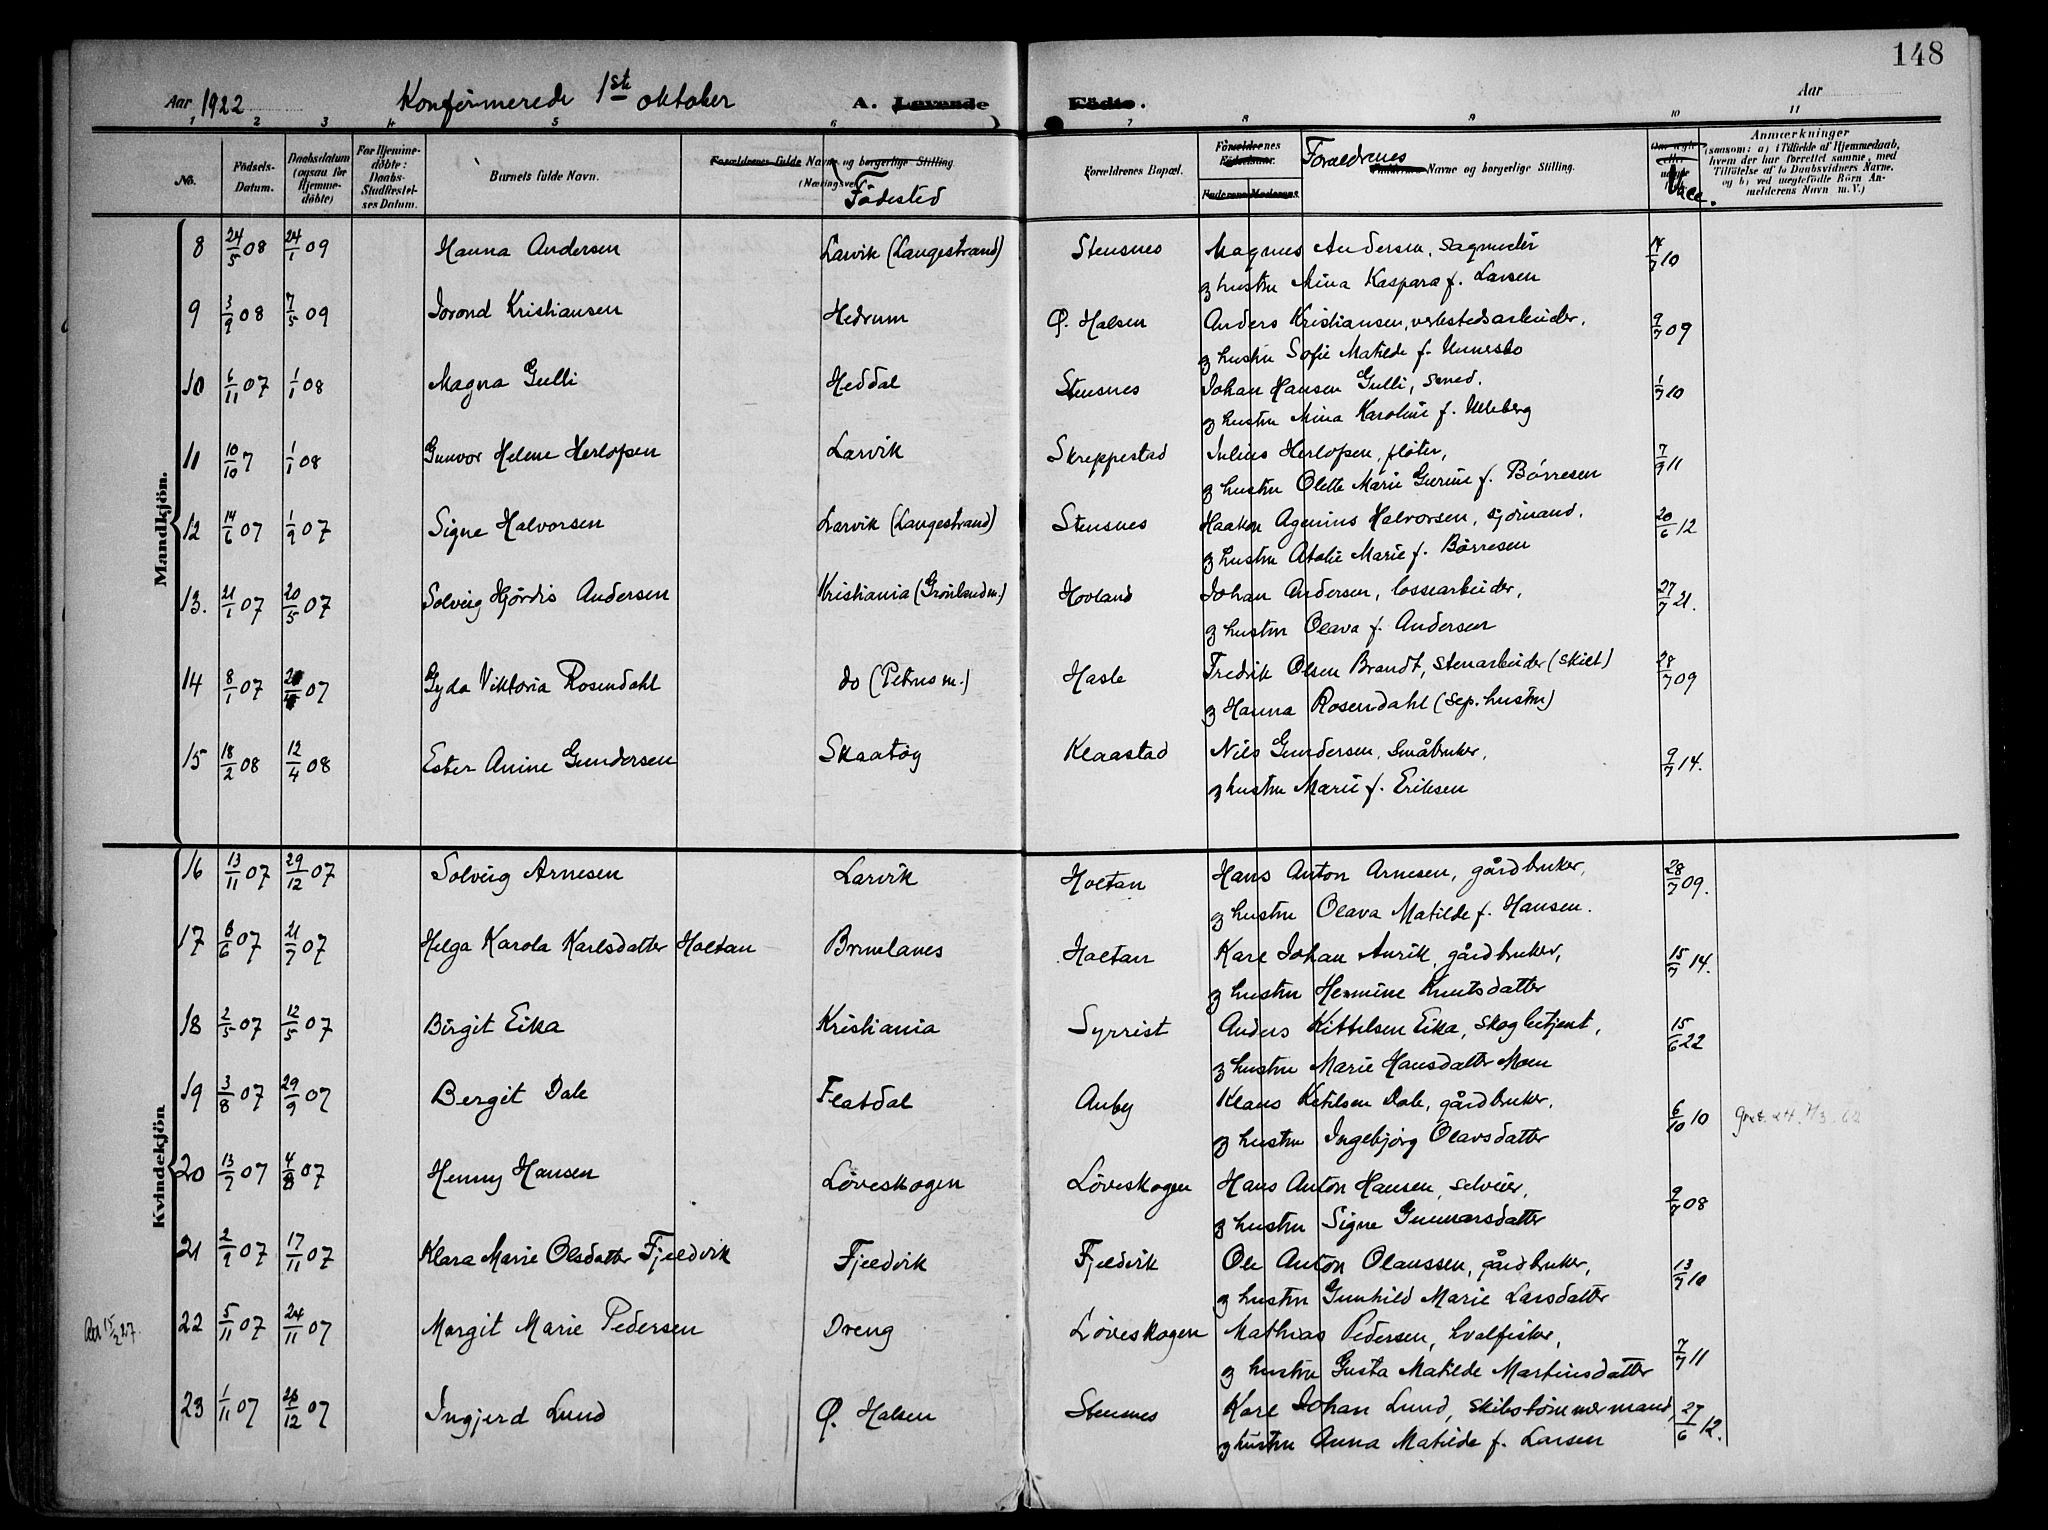 148
Aar 1922 Konfirmerede 1ste oktober A. Levende Födte. Aar
1 2 3 4 5 6 7 8 9 10 11
No. Födsels-Datum. Daabsdatum (ogsaa for Hjemmedöbte) For Hjemmedöbte: Daabs-Stadfæstelses Datum. Barnets fulde Navn. Forældrenes fulde Navn og borgerlige Stilling. (Næringsvei) Födested Forældrenes Bopæl. Forældrenes Faderens Moderens Forældrenes Navne og borgerlige Stilling. Vacc. Anmærkninger (saasom: a) i Tilfælde af Hjemmedaab, hvem der har forrettet samme, med Tilföielse af to Daabsvidners Navne, og b) ved uegtefödte Börn Anmelderens Navn m. V.)
Mandkjön.
8 24/5 08 24/1 09 Hanna Andersen Larvik (Langestrand) Stensnes Magnus Andersen, sagmester 14/7 10
og hustru Mina Kaspara f. Larsen
9 3/9 08 7/5 09 Jorond Kristiansen Hedrum Ø. Halsen Anders Kristiansen, verkstedsarbeider, 9/7 09
og hustru Sofie Matilde f.
10 6/11 07 1/1 08 Magna Gulli Heddal Stensnes Johan Hansen Gulli, smed. 1/7 10
og hustru Mina Karoline f. Ulleberg
11 10/10 7 1/1 08 Gunvor Helene Herlofsen Larvik Skreppestad Julius Herlofsen, fløter, 7/9 11
og hustru Olette Marie Gurine f. Børresen
12 14/6 07 1/9 07 Signe Halvorsen Larvik (Langestrand) Stensnes Haakon Agenius Halvorsen, sjömand. 20/6 12
og hustru Atalie Marie f. Børresen
13. 21/1 07 20/5 07 Solveig Hjördis Andersen Kristiania (Grönland m.) Hovland Johan Andersen, lossearbeider, 27/7 21.
og hustru Olava f. Andersen
14 8/1 07 07 Gyda Viktoria Rosendahl do (Petrus m.) Hasle Fredrik Olsen Brandt, stenarbeider (skilt) 28/7 09
og Hanna Rosendahl (sep. hustru)
15 18/2 08 12/4 08 Ester Anine Gundersen Skaatøy Klaastad Nils Gundersen, Småbruker, 9/7 14.
og hustru Marie f. Eriksen
Kvindekjön
16 13/11 07 29/12 07 Solveig Arnesen Larvik Holtan Hans Anton Arnesen, gårdbruker, 28/7 09.
og hustru Olava Matilde f. Hansen.
17 8/6 07 21/7 07 Helga Karola Karlsdatter Holtan Brunlanes Holtan Karl Johan Aurik, gårdbruker, 15/7 14.
og hustru Hermine Knutsdatter
18 2/5 07 12/5 07 Birgit Eika Kristiania Syrrist Anders Kittelsen Eika, skogbetjent, 15/6 22
og hustru Marie Hansdatter Moen
19 3/8 07 29/9 07 Bergit Dale Flatdal Auby Klaus Ketilsen Dale, gårdbruker, 6/10 10
og hustru Ingebjörg Olavsdatter
20 13/7 07 4/8 07 Henny Hansen Løveskogen Løveskogen Hans Anton Hansen, selveier, 9/7 08
og hustru Signe Gunnarsdatter
21 2/9 07 17/11 07 Klara Marie Olsdatter Fjeldvik Fjeldvik Fjeldvik Ole Anton Olaussen, gårdbruker, 13/7 10
og hustru Gunhild Marie Larsdatter
22 5/11 07 24/11 07 Margit Marie Pedersen Dreng Løveskogen Mathias Pedersen, hvalfisker, 7/7 11
og hustru Gusta Matilde Martinsdatter
23 1/11 07 26/12 07 Ingjerd Lund Ø. Halsen Stensnes Karl Johan Lund, skibstömmermand, 27/6 12.
og hustru Anna Matilde f. Larsen